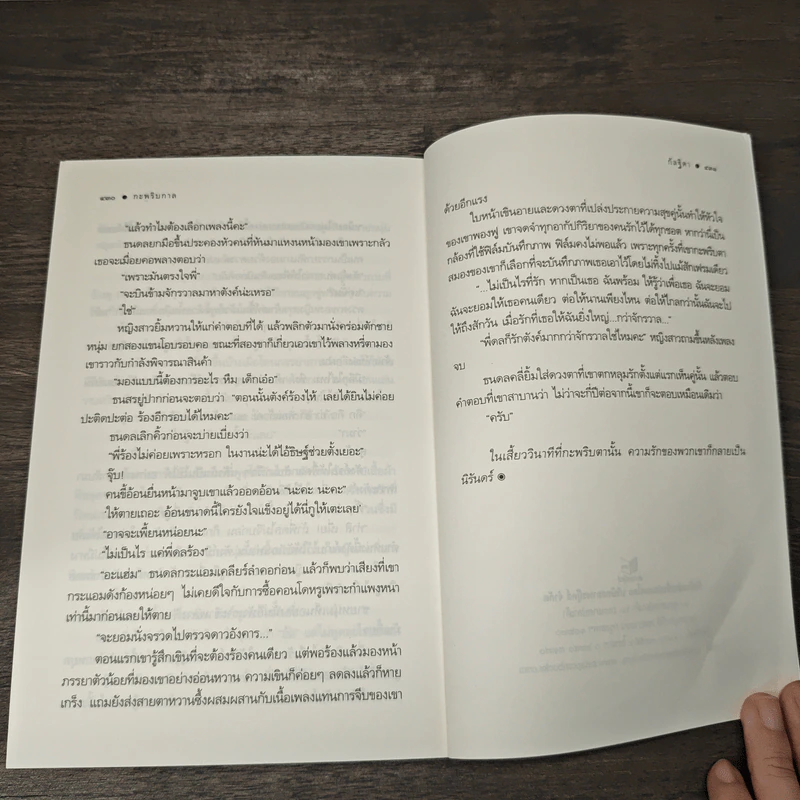 ๔๓๐ ● กะพริบกาล
"แล้วทำไมต้องเลือกเพลงนี้คะ"
ธนดลยกมือขึ้นประคองหัวคนที่หันมาแทงหน้ามองเขาเพราะกลัว
เธอจะเมื่อยคอพลางตอบว่า
"เพราะมันตรงใจพี่"
"จะบินข้ามจักรวาลมาหาตังค์น่ะเหรอ"
"ใช่"
หญิงสาวยิ้มหวานให้แก่คำตอบที่ได้ แล้วพลิกตัวมานั่งคร่อมตักชาย
หนุ่ม ยกสองแขนโอบรอบคอ ขณะที่สองขาก็เกี่ยวเอวเขาไว้พลางหรี่ตามอง
เขาราวกับกำลังพิจารณาสินค้า
"มองแบบนี้ต้องการอะไร หืม เด็กเอ๋อ"
ธนสรอู่ปากก่อนจะตอบว่า "ตอนนั้นตังค์ร้องไห้ เลยได้ยินไม่ค่อย
ปะติดปะต่อ ร้องอีกรอบได้ไหมคะ"
ธนดลเลิกคิ้วก่อนจะบ่ายเบี่ยงว่า
"พี่ร้องไม่ค่อยเพราะหรอก ในงานน่ะได้ไอ้อิษฐ์ช่วยตั้งเยอะ"
จุ๊บ!
คนขี้อ้อนยื่นหน้ามาจูบเขาแล้วออดอ้อน "นะคะ นะคะ"
'ให้ตายเถอะ อ้อนขนาดนี้ใครยังใจแข็งอยู่ได้นี่กูให้เตะเลย'
"อาจจะเพี้ยนหน่อยนะ"
"ไม่เป็นไร แค่พี่ดลร้อง"
"อะแฮ่ม" ธนดลกระแอมเคลียร์ลำคอก่อน แล้วก็พบว่าเสียงที่เขา
กระแอมดังก้องหน่อยๆ ไม่เคยดีใจกับการซื้อคอนโดหรูเพราะกำแพงหนา
เท่านี้มาก่อนเลยให้ตาย
"จะยอมนั่งจรวดไปตรวจดาวอังคาร..."
ตอนแรกเขารู้สึกเขินที่จะต้องร้องคนเดียว แต่พอร้องแล้วมองหน้า
ภรรยาตัวน้อยที่มองเขาอย่างอ่อนหวาน ความเขินก็ค่อยๆ ลดลงแล้วก็หาย
เกร็ง แถมยังส่งสายตาหวานซึ้งผสมผสานกับเนื้อเพลงแทนการจีบของเขา
กัลฐิดา ● ๔๓๑
ด้วยอีกแรง
ใบหน้าเขินอายและดวงตาที่เปล่งประกายความสุขคู่นั้นทำให้หัวใจ
ของเขาพองฟู เขาจดจำทุกอากัปกิริยาของคนรักไว้ได้ทุกชอต หากว่านี่เป็น
กล้องที่ใช้ฟิล์มบันทึกภาพ ฟิล์มคงไม่พอแล้ว เพราะทุกครั้งที่เขากะพริบตา
สมองของเขาก็เลือกที่จะบันทึกภาพเธอเอาไว้โดยไม่ทิ้งไปแม้สักเฟรมเดียว
"...ไม่เป็นไรที่รัก หากเป็นเธอ ฉันพร้อม ให้รู้ว่าเพื่อเธอ ฉันจะยอม
ฉันจะยอมให้เธอคนเดียว ต่อให้นานเพียงไหน ต่อให้ไกลกว่านั้นฉันจะไป
ให้ถึงสักวัน เมื่อรักที่เธอให้ฉันยิ่งใหญ่...กว่าจักรวาล..."
"พี่ดลก็รักตังค์มากกว่าจักรวาลใช่ไหมคะ" หญิงสาวถามขึ้นหลังเพลง
จบ
ธนดลคลี่ยิ้มใส่ดวงตาที่เขาตกหลุมรักตั้งแต่แรกเห็นคู่นั้น แล้วตอบ
คำตอบที่เขาสาบานว่า ไม่ว่าจะกี่ปีต่อจากนี้เขาก็จะตอบเหมือนเดิมว่า
"ครับ"
ในเสี้ยววินาทีที่กะพริบตานั้น ความรักของพวกเขาก็กลายเป็น
นิรันดร์ ◉